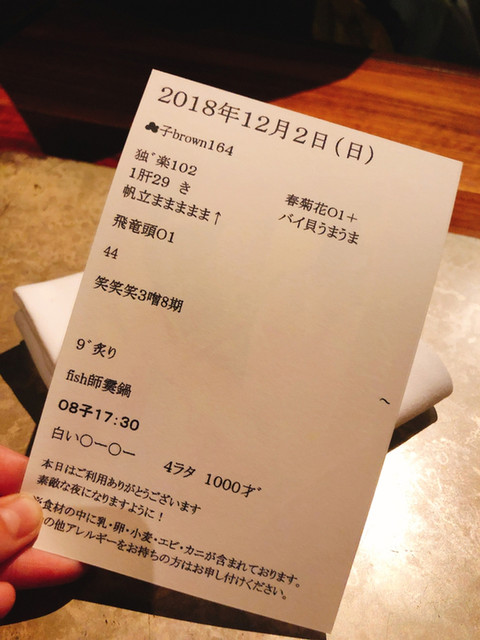 2018年12月2日(日)
♣子brown164
独゛楽102
1肝29 き
春菊花01+
帆立まままままま↑
バイ貝うまうま
飛竜頭01
44
笑笑笑3噌8期
9゛炙り
~
fish師羹鍋
08子17:30
白い〇ー〇ー
4ラタ 1000才゛
本日はご利用ありがとうございます
素敵な夜になりますように!
※食材の中に乳・卵・小麦・エビ・カニが含まれております。
の他アレルギーをお持ちの方はお申し付けください。